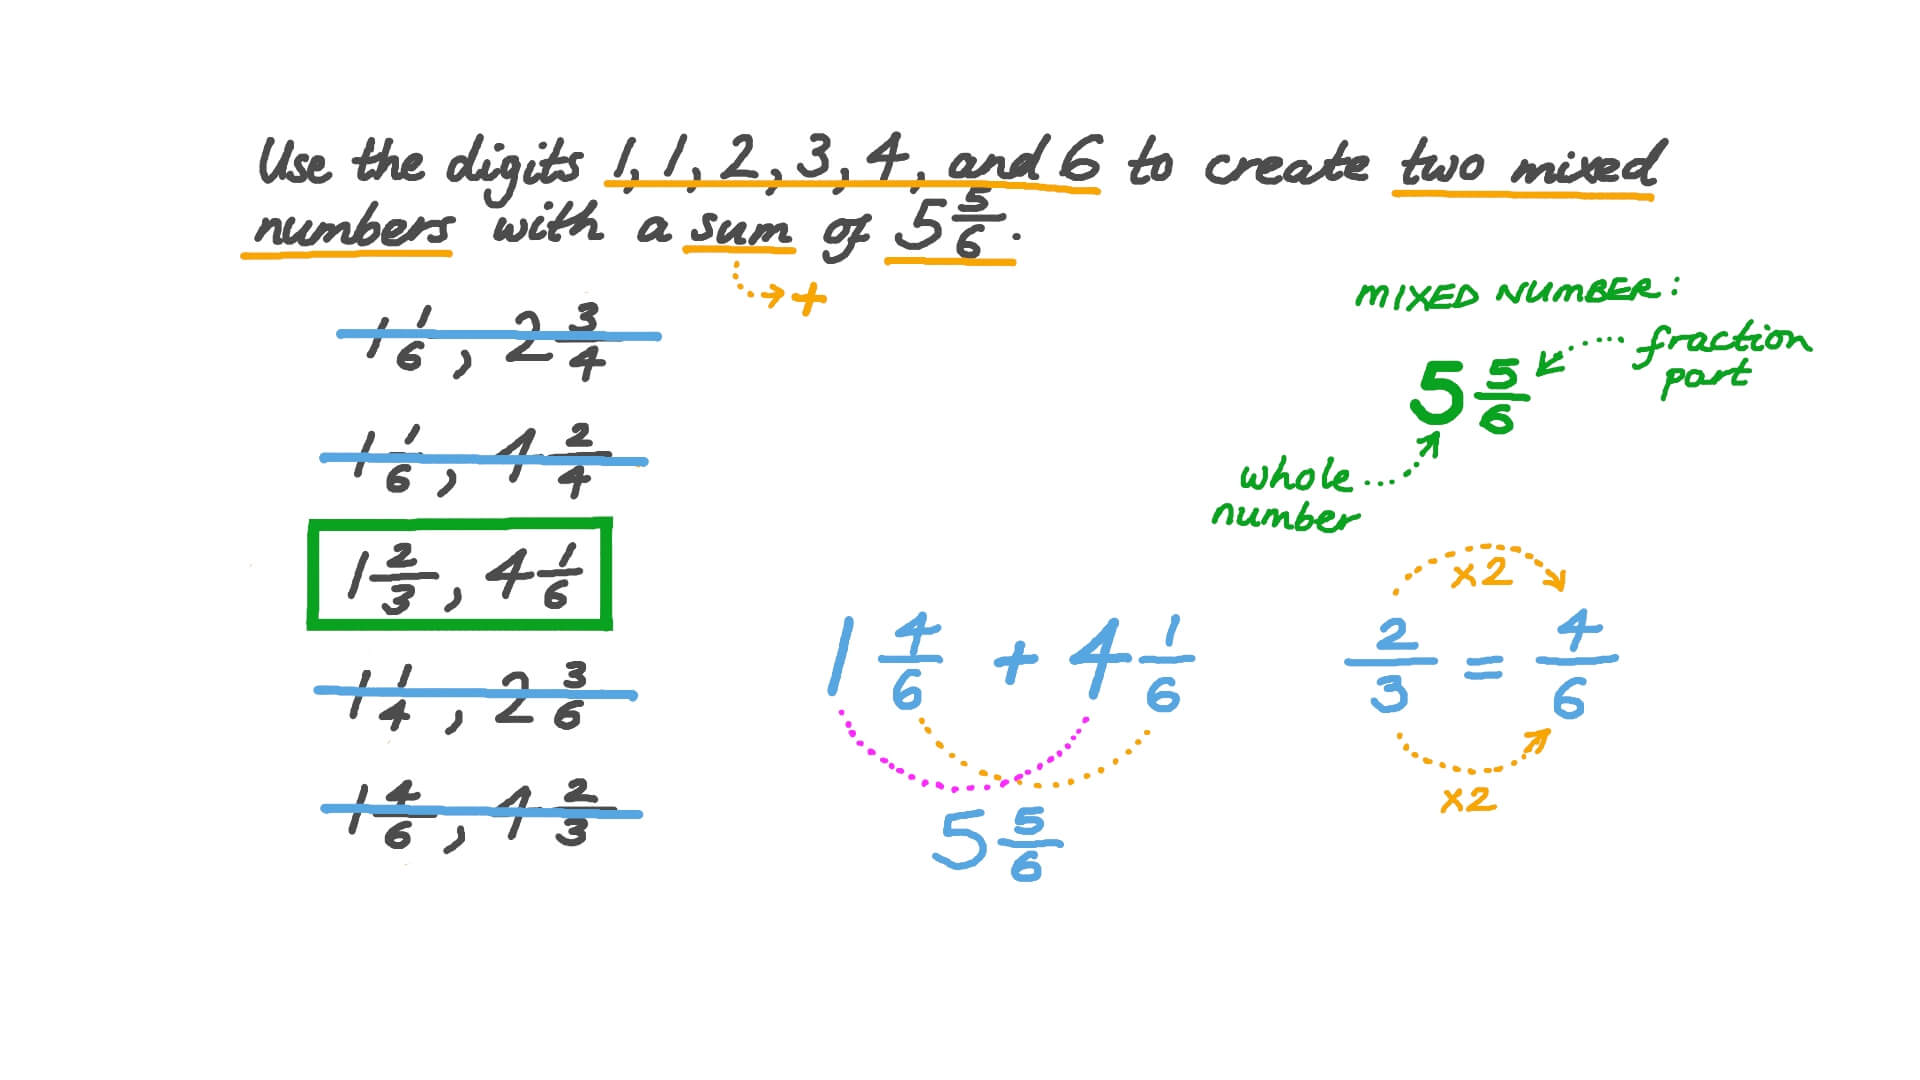 Use the digits 1, 1, 2, 3, 4, and 6 to create two mixed
numbers with a sum of 5 5/6.
+
1 1/6, 2 3/4
1 1/6, 4 2/4
1 2/3, 4 1/6
1 1/4, 2 3/6
1 4/6, 4 2/3
MIXED NUMBER:
fraction
part
5 5/6
whole
number
1 4/6 + 4 1/6
5 5/6
×2
2/3 = 4/6
×2